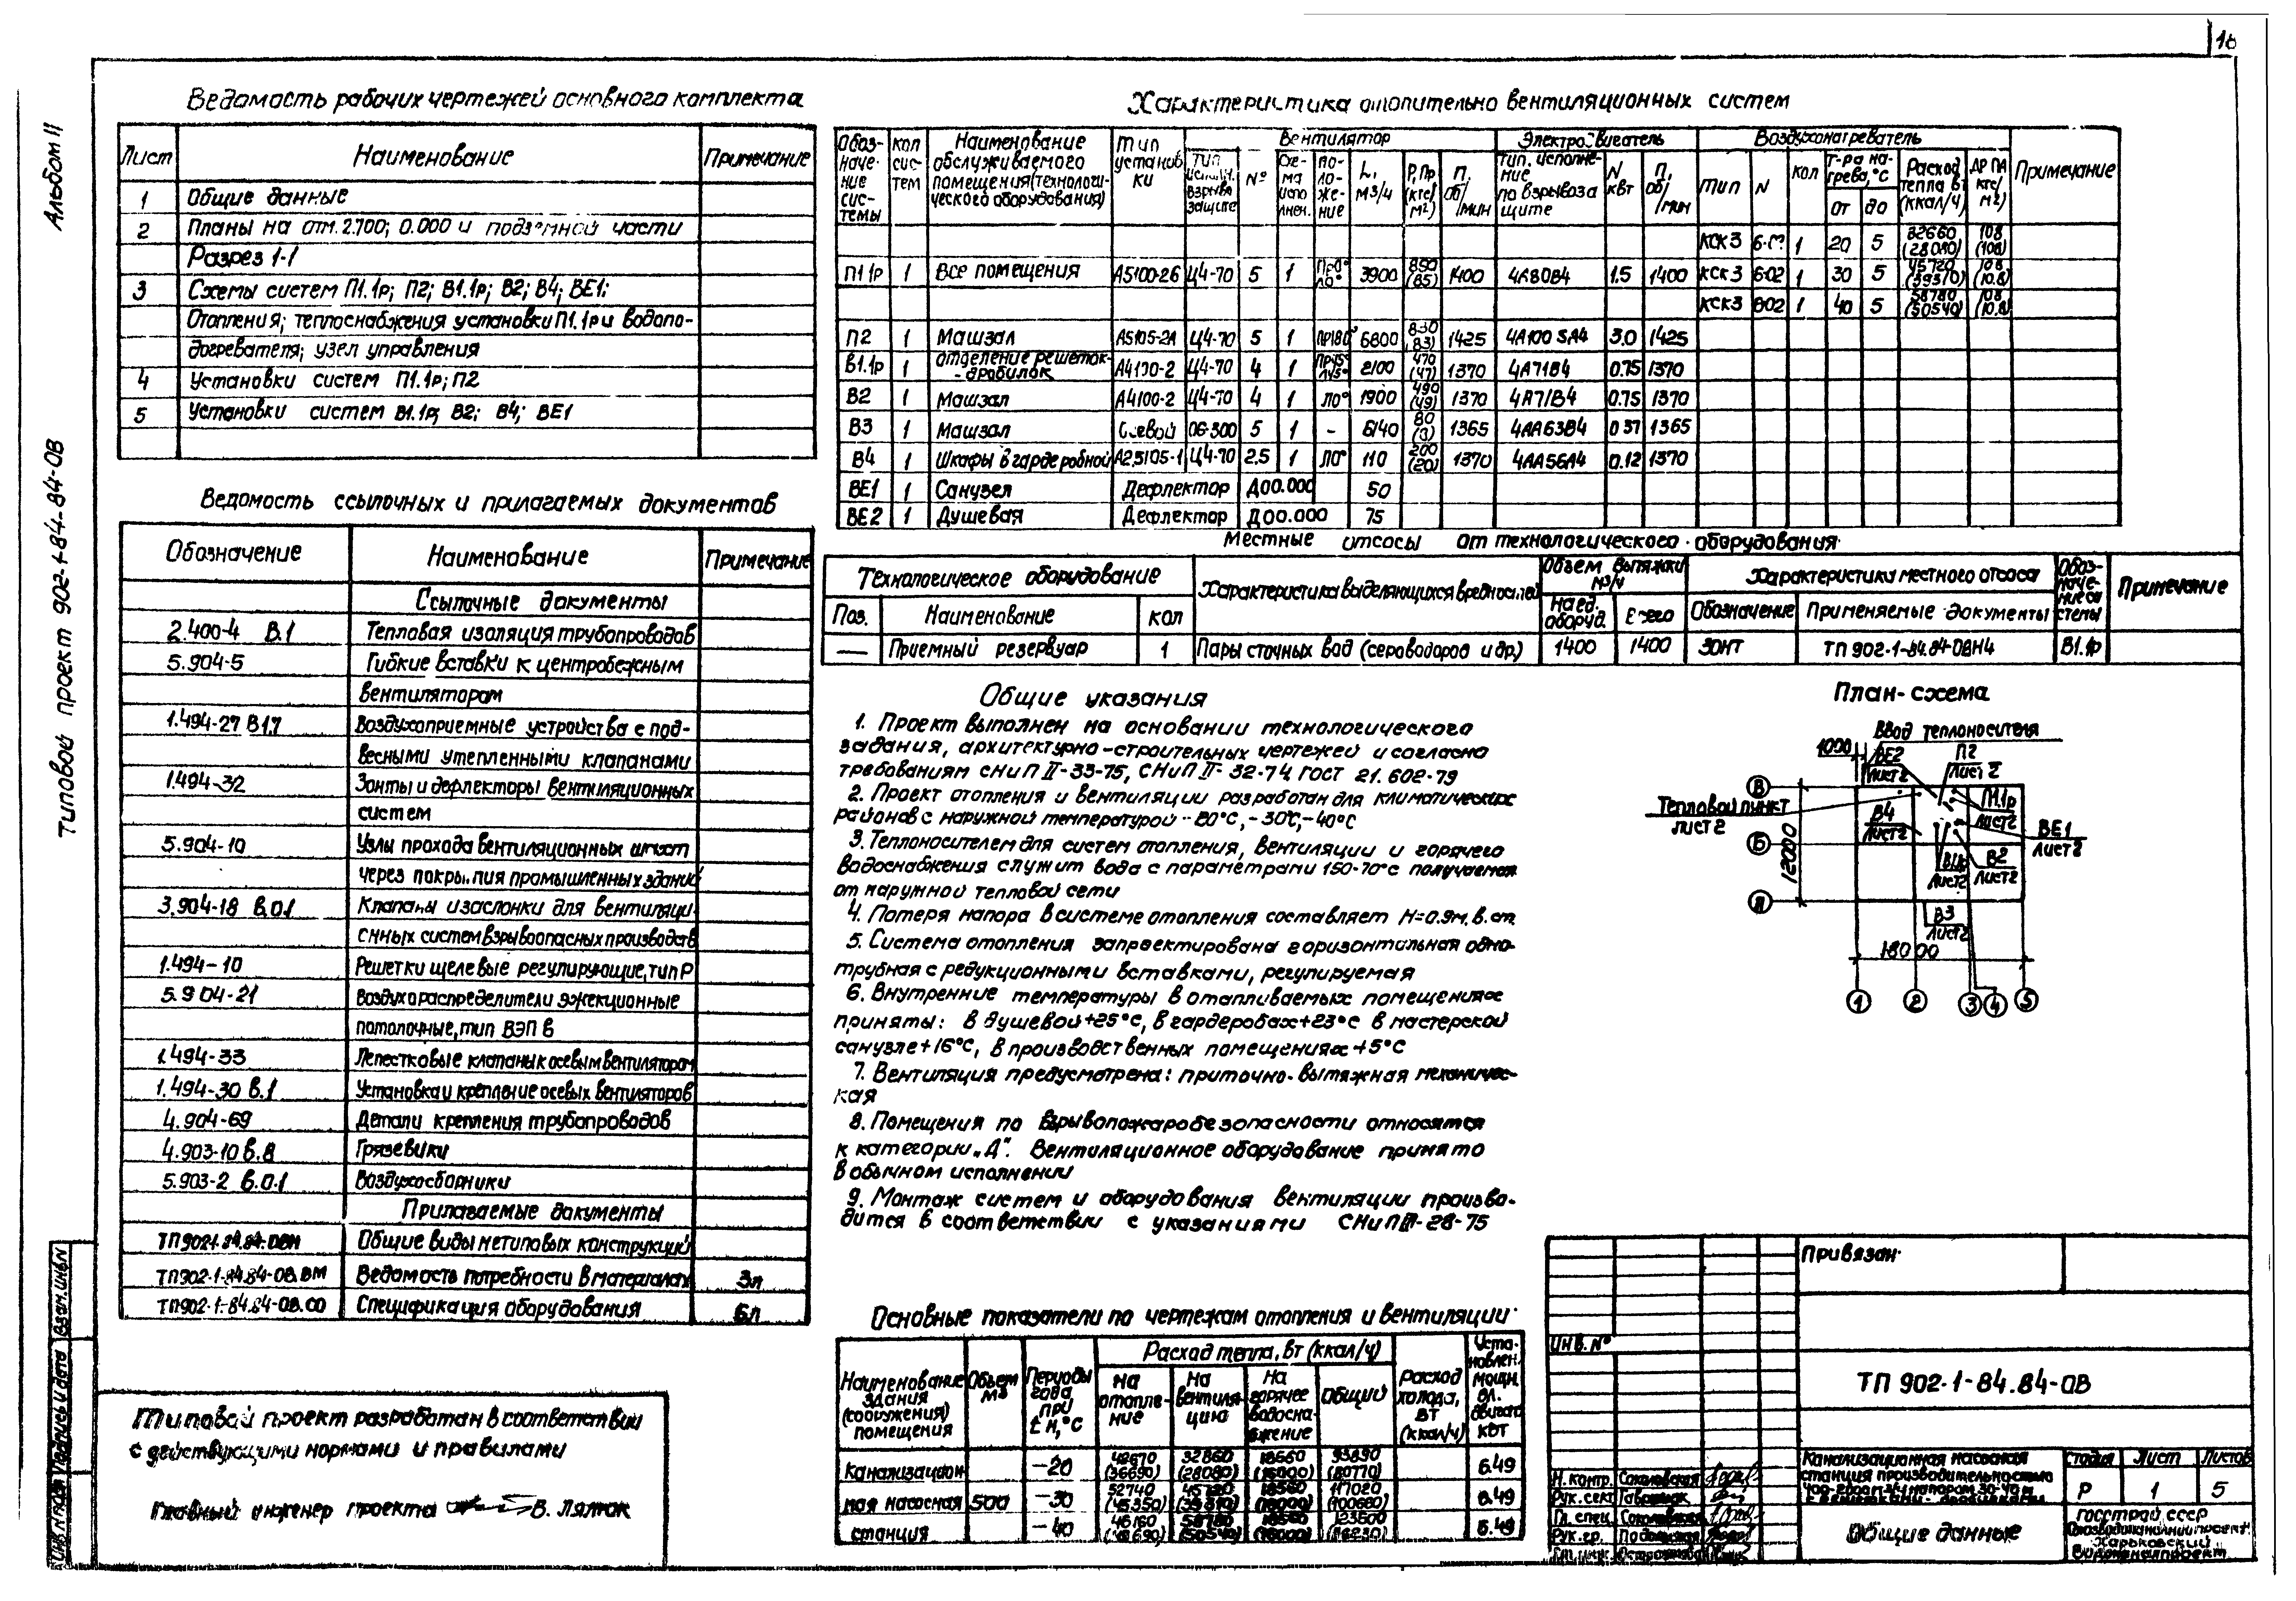 16
Альбом II
Типовой проект 902-1-84.84-ОВ
Ведомость рабочих чертежей основного комплекта
Лист Наименование Примечание
1 Общие данные
2 Планы на отм. 2.700; 0.000 и подземной части
Разрез 1-1
3 Схемы систем П1.1р; П2; В1.1р; В2; В4; ВЕ1;
Отопления; теплоснабжения установки П1.1р и водопо-
догревателя; узел управления
4 Установки систем П1.1р; П2
5 Установки систем В1.1р; В2; В4; ВЕ1
Ведомость ссылочных и прилагаемых документов
Обозначение Наименование Примечание
Ссылочные документы
2.400-4 В.1 Тепловая изоляция трубопроводов
5.904-5 Гибкие вставки к центробежным
вентиляторам
1.494-27 В1.7 Воздухоприемные устройства с под-
весными утепленными клапанами
1.494-32 Зонты и дефлекторы вентиляционных
систем
5.904-10 Узлы прохода вентиляционных шахт
через покрытия промышленных зданий
3.904-18 в.0.1 Клапаны и заслонки для вентиляци-
онных систем взрывоопасных производств
1.494-10 Решетки щелевые регулирующие, тип Р
5.904-21 Воздухораспределители эжекционные
потолочные, тип ВЭП в
1.494-33 Лепестковые клапаны к осевым вентиляторам
1.494-30 в.1 Установка и крепление осевых вентиляторов
4.904-69 Детали крепления трубопроводов
4.903-10 в.8 Грязевики
5.903-2 в.0.1 Воздухосборники
Прилагаемые документы
ТП902-1-84.84-ОВН Общие виды нетиповых конструкций
ТП902-1-84.84-ОВ.ВМ Ведомость потребности в материалах 3л
ТП902-1-84.84-ОВ.СО Спецификация оборудования 6л
Типовой проект разработан в соответствии
с действующими нормами и правилами
Главный инженер проекта В. Лялюк
Инв.N подл Подпись и дата Взам.инв.N
Характеристика отопительно вентиляционных систем
Обоз-наче-ние сис-темы кол сис-тем Наименование обслуживаемого помещения (технологи-ческого оборудования) Тип установ ки Вентилятор Электродвигатель Воздухонагреватель Примечание
тип исполн. взрыва защите № Схе-ма испо лнен. по-ло-же-ние L, м3/ч Р, Пр (кгс/м2) п. об/мин тип. исполне-ние по взрывоза щите N квт п, об/мин Тип N кол т-ра на-грева, °С от до Расход тепла вт (ккал/ч) ΔР ПА кгс/м2)
КСК3 1 20 5 32660 (28080) 108 (108)
П1 1р 1 Все помещения А5100-2б Ц4-70 5 1 Пр0° Л0° 3900 850 (85) 1400 4А80В4 1.5 1400 КСК3 6-02 1 30 5 45720 (39310) 10.8 (10.8)
КСК3 802 1 40 5 58780 (50540) 108 (10.8)
П2 1 Машзал А5105-2А Ц4-70 5 1 ПР180° 6800 830 (83) 1425 4А100 SА4 3.0 1425
В1.1р 1 отделение решеток-дробилок А4100-2 Ц4-70 4 1 Пр45° Л45° 2100 470 (47) 1370 4А71В4 0.75 1370
В2 1 Машзал А4100-2 Ц4-70 4 1 Л0° 1900 490 (49) 1370 4А71В4 0.75 1370
В3 1 Машзал Осевой 06-300 5 1 - 6140 80 1365 4АА63В4 0 37 1365
В4 1 Шкафы в гардеробной А2,5105-1 Ц4-70 2.5 1 Л0° 110 200 (20) 1370 4АА56А4 0.12 1370
ВЕ1 1 Санузел Дефлектор Д00.000 50
ВЕ2 1 Душевая Дефлектор Д00.000 75
Местные отсосы от технологического оборудования
Технологическое оборудование Характеристика выделяющихся вредностей Объем вытяжки м3/ч Характеристики местного отсоса Обоз-наче-ние си стемы Примечание
Поз. Наименование кол На ед. оборуд. Всего Обозначение Применяемые документы
— Приемный резервуар 1 Пары сточных вод (сероводород и др.) 1400 1400 ЗОНТ ТП 902-1-84.84-ОВН4 В1.1р
Общие указания
1. Проект выполнен на основании технологического
задания, архитектурно-строительных чертежей и согласно
требованиям СНиП II-33-75, СНиП II-32-74 ГОСТ 21.602-79
2. Проект отопления и вентиляции разработан для климатических
районов с наружной температурой -20°С, -30°С, -40°С
3. Теплоносителем для систем отопления, вентиляции и горячего
водоснабжения служит вода с параметрами 150-70°С получаемая
от наружной тепловой сети
4. Потеря напора в системе отопления составляет Н=0.9м.в.ст.
5. Система отопления запроектирована горизонтальная одно-
трубная с редукционными вставками, регулируемая
6. Внутренние температуры в отапливаемых помещениях
приняты: в душевой +25°С, в гардеробах +23°С в мастерской
санузле +16°С, в производственных помещениях +5°С
7. Вентиляция предусмотрена: приточно-вытяжная механичес-
кая
8. Помещения по взрывопожаробезопасности относятся
к категории „Д". Вентиляционное оборудование принято
в обычном исполнении
9. Монтаж систем и оборудования вентиляции произво-
дится в соответствии с указаниями СНиП III-28-75
План-схема
Ввод теплоносителя
1000 ВЕ2 лист 2 П2 лист 2
В Тепловой пункт лист 2 В4 лист 2 П1.1р лист 2
Б 12000 ВЕ1 лист 2
В1.1р лист 2 В2 лист 2
В3 лист 2
18000
1 2 3 4 5
Основные показатели по чертежам отопления и вентиляции
Наименование здания (сооружения) помещения Объем м3 Периоды года при tн,°С Расход тепла, вт (ккал/ч) Расход холода, вт (ккал/ч) Уста-новлен. мощн. эл. двигат квт
на отопле-ние На вентиля-цию На горячее водосна-бжение Общий
Канализацион -20 (36690) 32860 (28080) 18560 (16000) 93890 (80770) 6.49
ная насосная 500 -30 52740 (45350) 45720 (39310) 18560 (16000) 117020 (100680) 6.49
станция -40 58780 (50540) (16000) 123500 6.49
Привязан
Инв. №
ТП 902-1-84.84-ОВ
Н.контр. Соколовская
Рук.сект
Гл. спец. Соколовская
Рук.гр. Подольская
Канализационная насосная
станция производительностью
400-2000м3/ч напором 30-40м
с решетками-дробилками
Стадия Лист Листов
Р 1 5
Общие данные
Госстрой СССР
Союзводоканалниипроект
Харьковский
Водоканалпроект